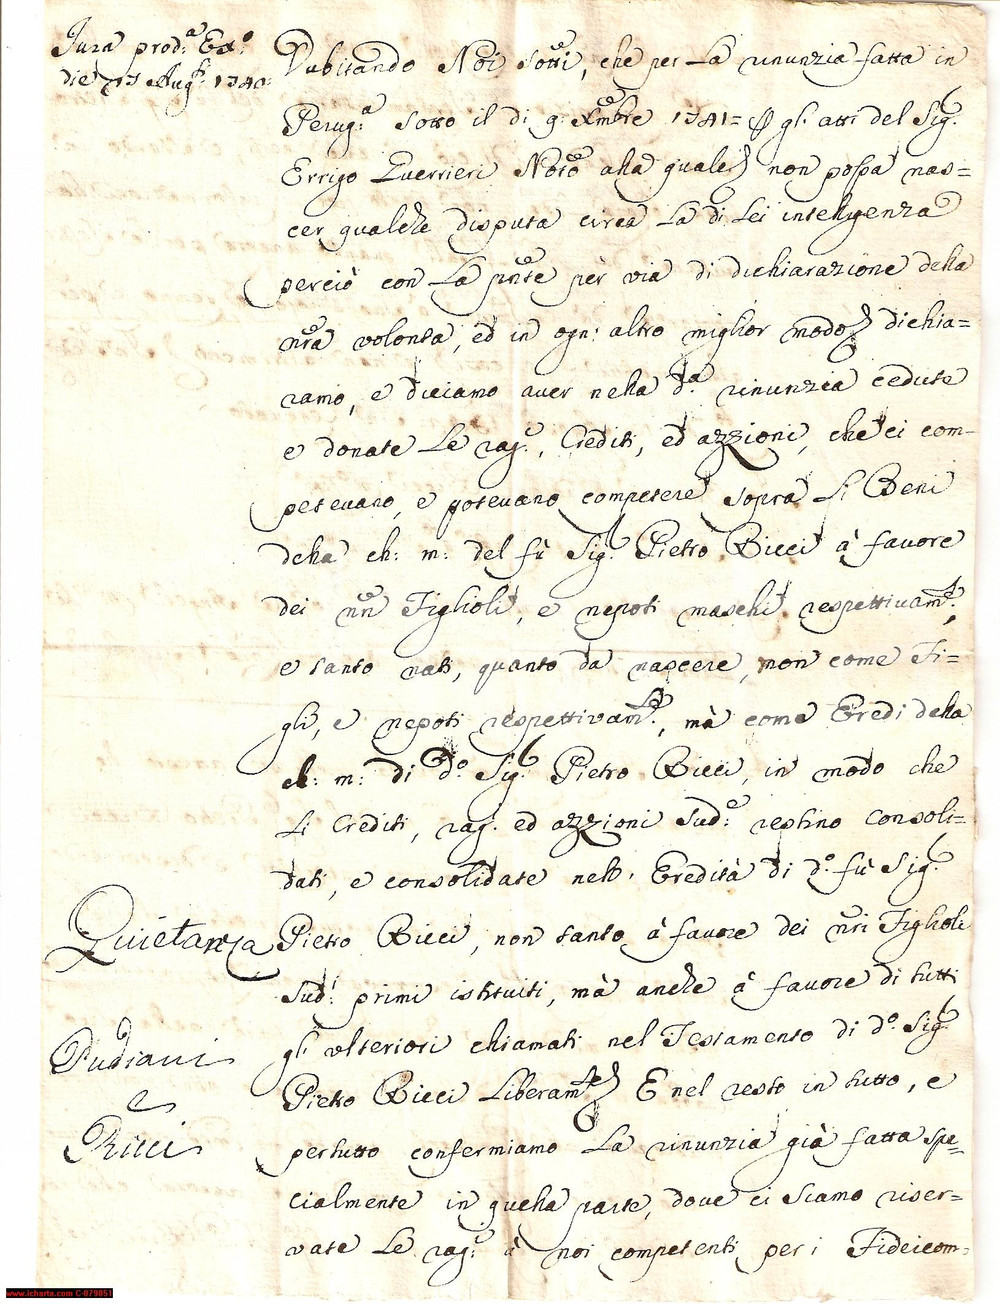 Jura prod.ª Ex.º
die Aug.
Dubitando Noi Sotti, che per La rinunzia fatta in
Perug.ª sotto il di 9: Xmbre 1741= gl'atti del Sig.
Errigo Guerrieri Noro alla quale non possa nas=
cer qualche disputa circa La di Lei intelligenza
perciò con La pnte per via di dichiarazione della
nra volontà, ed in ogn: altro miglior modo dichia=
ramo, e diciamo aver nella d.ª rinunzia cedute
e donate Le rag., Crediti, ed azzioni, che ci com-
petevano, e potevano competere sopra Li Beni
della ch: m: del fù Sig. Pietro Ricci à favore
dei nri Figlioli, e nepoti maschi respettivam.te,
e tanto nati, quanto da nascere, non come Fi=
gli, e nepoti respettivam.te, mà come Eredi della
ch: m: di d.º Sig. Pietro Ricci, in modo che
Li Crediti, rag. ed azzioni Sud.e restino consoli=
dati, e consolidate nell' Eredità di d.º fù Sig.
Pietro Ricci, non tanto à favore dei nri Figlioli
Sud.i primi istituiti, mà anche à favore di tutti
gl' ulteriori chiamati nel Testamento di d.º Sig.
Pietro Ricci Liberam.te E nel resto in tutto, e
pertutto confermiamo La rinunzia già fatta spe=
cialmente in quella parte, dove ci siamo riser=
vate Le rag. à noi competenti per i Fideicom=
Quietanza
e
Ricci
www.icharta.com C-079851